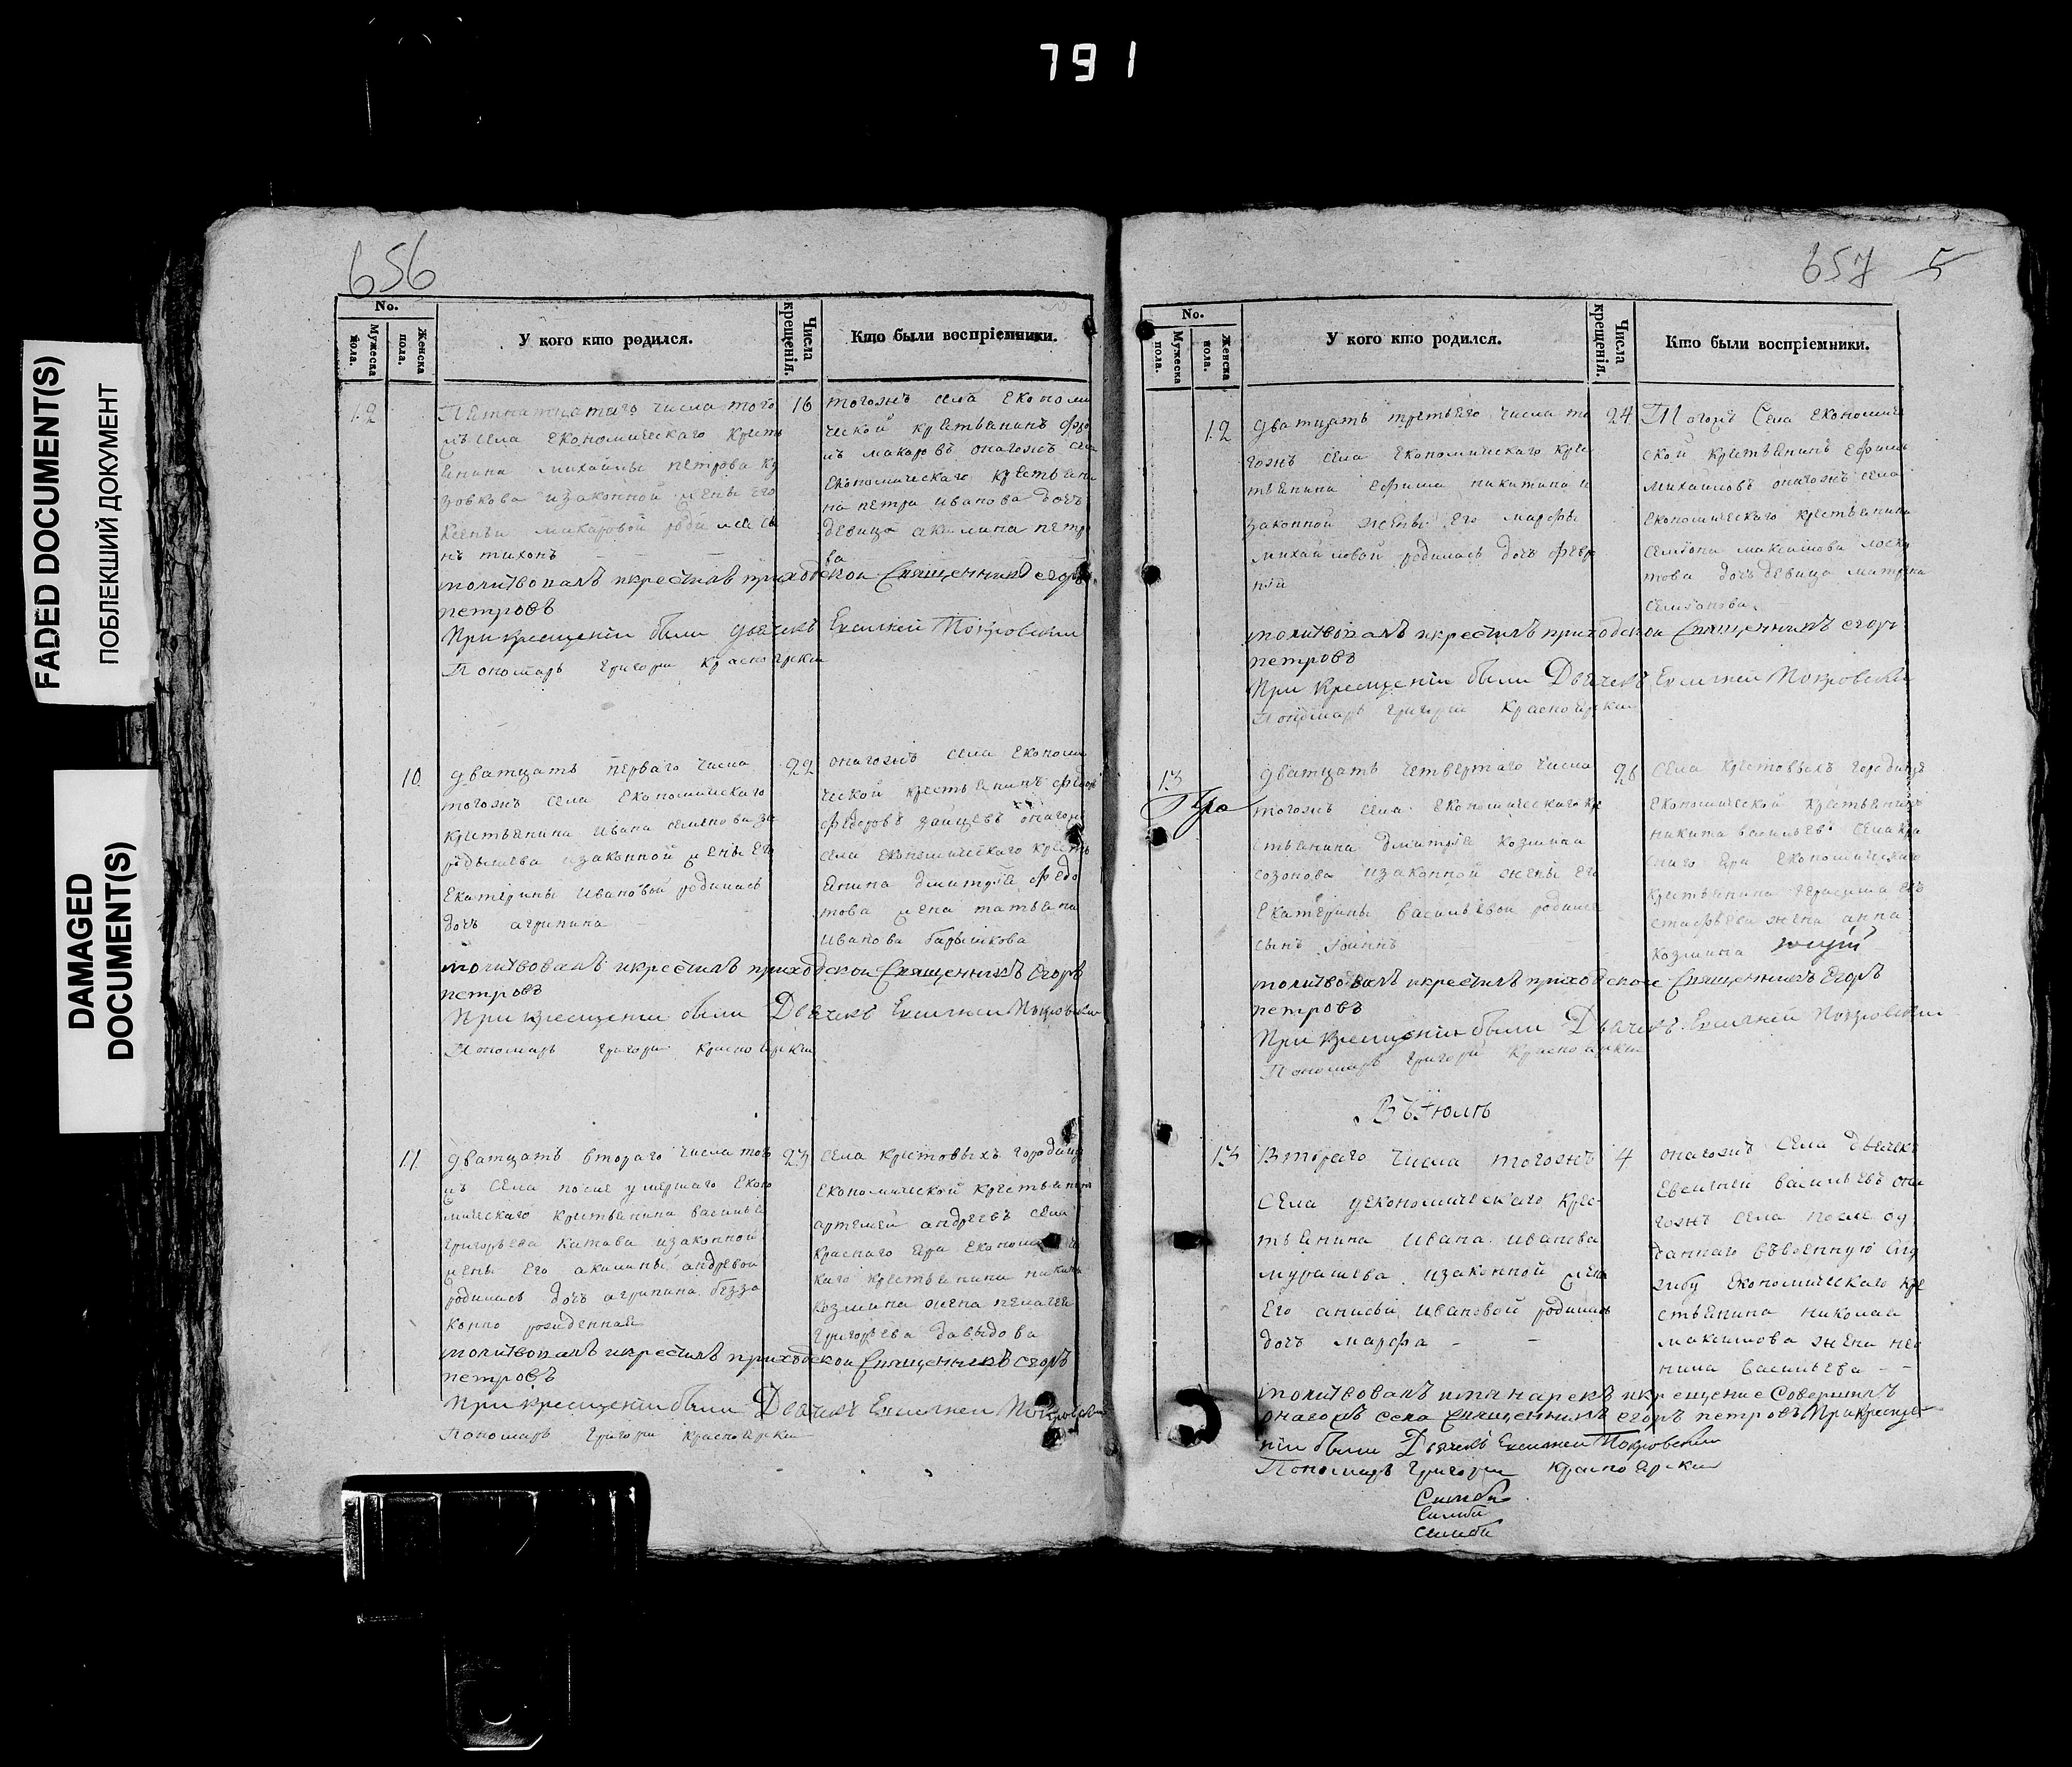 791
FADED DOCUMENT(S)
ПОБЛЕКШИЙ ДОКУМЕНТ
DAMAGED
DOCUMENT(S)
656
No.
Мужеска пола.
Женска пола.
У кого кто родился.
Числа крещенія.
Кто были воспріемники.
12
Пятнатцатаго числа того
жъ села Економическаго крестъ
янина михайлы петрова ку
зовкова изаконной жены его
Ксеньи макаровой родился сы
нъ тихонъ
16
тогожъ села Економи
ческой крестьянинъ
макаровъ онагожъ села
Економическаго крестьяни
на петра иванова дочь
девица акилина петро
ва
молитвовалъ икрестилъ приходской Священникъ егоръ
петровъ
При крещеніи были дьячекъ Евсигней Покровскии
Пономарь григори красноярски
10
дватцать перваго числа
тогожъ села Економическаго
крестьянина ивана семенова за
изаконной жены Его
Екатерины ивановой родилась
дочь агрипина
22
онагожъ села Економи
ческой крестьянинъ
федоровъ зайцевъ онагожъ
села Економическаго кресть
янина дмитрия федо
това жена татьяна
иванова барышкова
молитвовалъ икрестилъ приходской Священникъ Егоръ
петровъ
При крещеніи были Дьячекъ Евсигней Покровскии
Пономарь григори красноярски
11
дватцать втораго числа того
жъ села после умершаго Еконо
мическаго крестьянина василья
григорьева катаева изаконной
жены Его акилины андревой
родилась дочь агрипина безза
конно рожденная
23
села крестовыхъ городищъ
Економической крестьянинъ
артемей андреевъ села
краснаго яра Економиче
каго крестьянина никиты
козмина жена пелагея
григорьева давыдова
молитвовалъ икрестилъ приходской Священникъ егоръ
петровъ
При крещеніи были Дьячекъ Евсигней Покровскии
Пономарь григори красноярски
657 5
No.
Мужеска пола.
Женска пола.
У кого кто родился.
Числа крещенія.
Кто были воспріемники.
12
дватцать третьяго числа то
гожъ села Економическаго крес
тьянина Ефима никитина и
законной жены Его марфы
михайловой родилась дочь февро
нія
24
Тогожъ Села Економиче
ской крестьянинъ Ефимъ
михайловъ онагожъ села
Економическаго крестьянина
семіона максимова лоску
това дочь девица матрена
семіонова
молитвовалъ икрестилъ приходской Священникъ егоръ
петровъ
При Крещеніи были Дьячекъ Евсигней Покровскии
Пономарь григорій Красноярски
13
дватцать четвертаго числа
тогожъ села Економическаго кре
стьянина дмитрія козмина
созонова изаконной жены его
Екатерины васильевой родился
сынъ іоаннъ
26
села крестовыхъ городищъ
Економической крестьянинъ
никита васильевъ села кра
снаго яра Економическаго
крестьянина герасима ев
стафьева жена анна
козмина
молитвовалъ икрестилъ приходской Священникъ Егоръ
петровъ
При крещеніи были Дьячекъ Евсигней Покровскии
Пономарь григори красноярски
Въ Іюль
13
Втораго числа тогожъ
села уекономическаго крес
тьянина ивана иванова
мурашева изаконной жены
Его анисьи ивановой родилась
дочь марфа
4
онагожъ села дьячекъ
Евсигней васильевъ она
гожъ села после от
даннаго въвоенную слу
жбу економическаго кре
стьянина николая
максимова жена нео
нила васильева
молитвовалъ имя нарекъ икрещение Совершилъ
онагожъ села священникъ егоръ петровъ При крещ
ніи были Дьячекъ Евсигней Покровскии
Пономарь григори красноярски